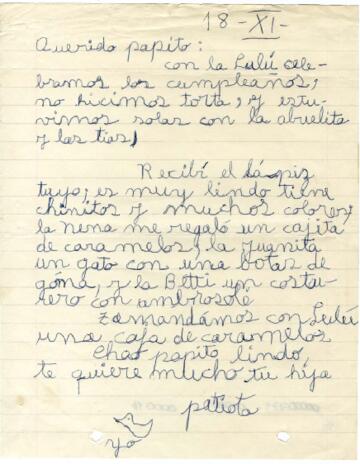 18-XI-
Querido papito:
con la Lulú cele-
bramos los cumpleaños,
no hicimos torta, y estu-
vimos solas con la abuelita
y las tías,
Recibí el lápiz
tuyo; es muy lindo tiene
chinitos y muchos colores;
la nena me regaló un cajita
de caramelos, la Juanita
un gato con una botas de
góma, y la Betti un costu-
rero con ambrosole
mandámos con Lulú
una caja de caramelos
Chao papito lindo,
te quiere mucho tu hija
patiota
yo